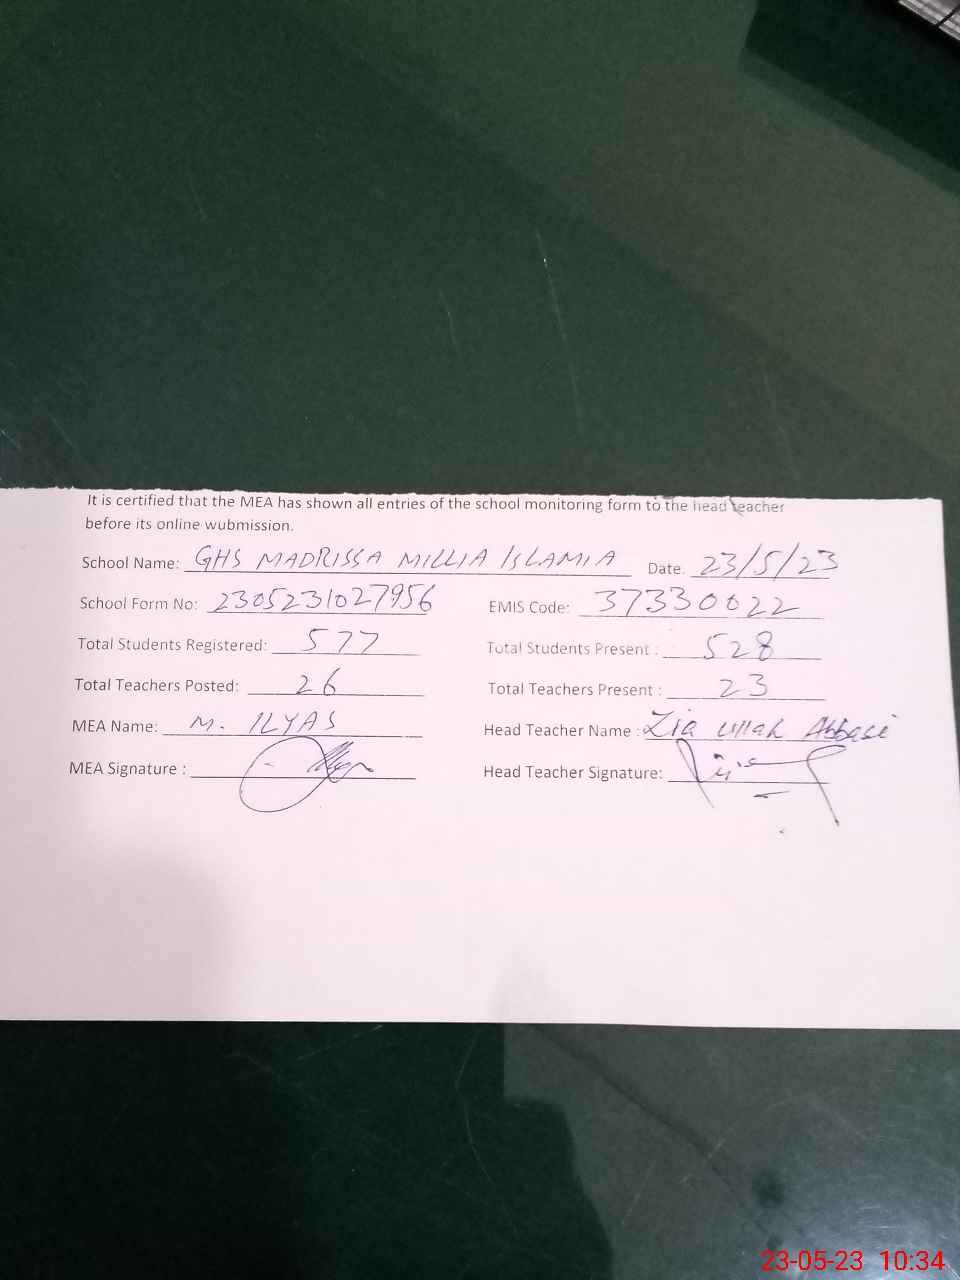 It is certified that the MEA has shown all entries of the school monitoring form to the head teacher
before its online wubmission.
School Name: GHS MADRISSA MILLIA ISLAMIA Date. 23/5/23
School Form No: 2305231027956 EMIS Code: 37330022
Total Students Registered: 577 Total Students Present : 528
Total Teachers Posted: 26 Total Teachers Present : 23
MEA Name: M. ILYAS Head Teacher Name : Zia ullah Abbasi
MEA Signature : Head Teacher Signature:
23-05-23 10:34